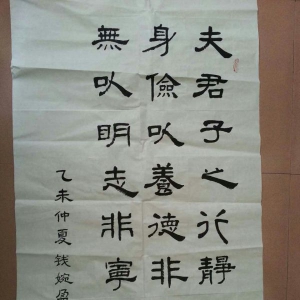 夫君子之行靜
身儉以養德非
無以明志非寧
乙未仲夏钱婉盈